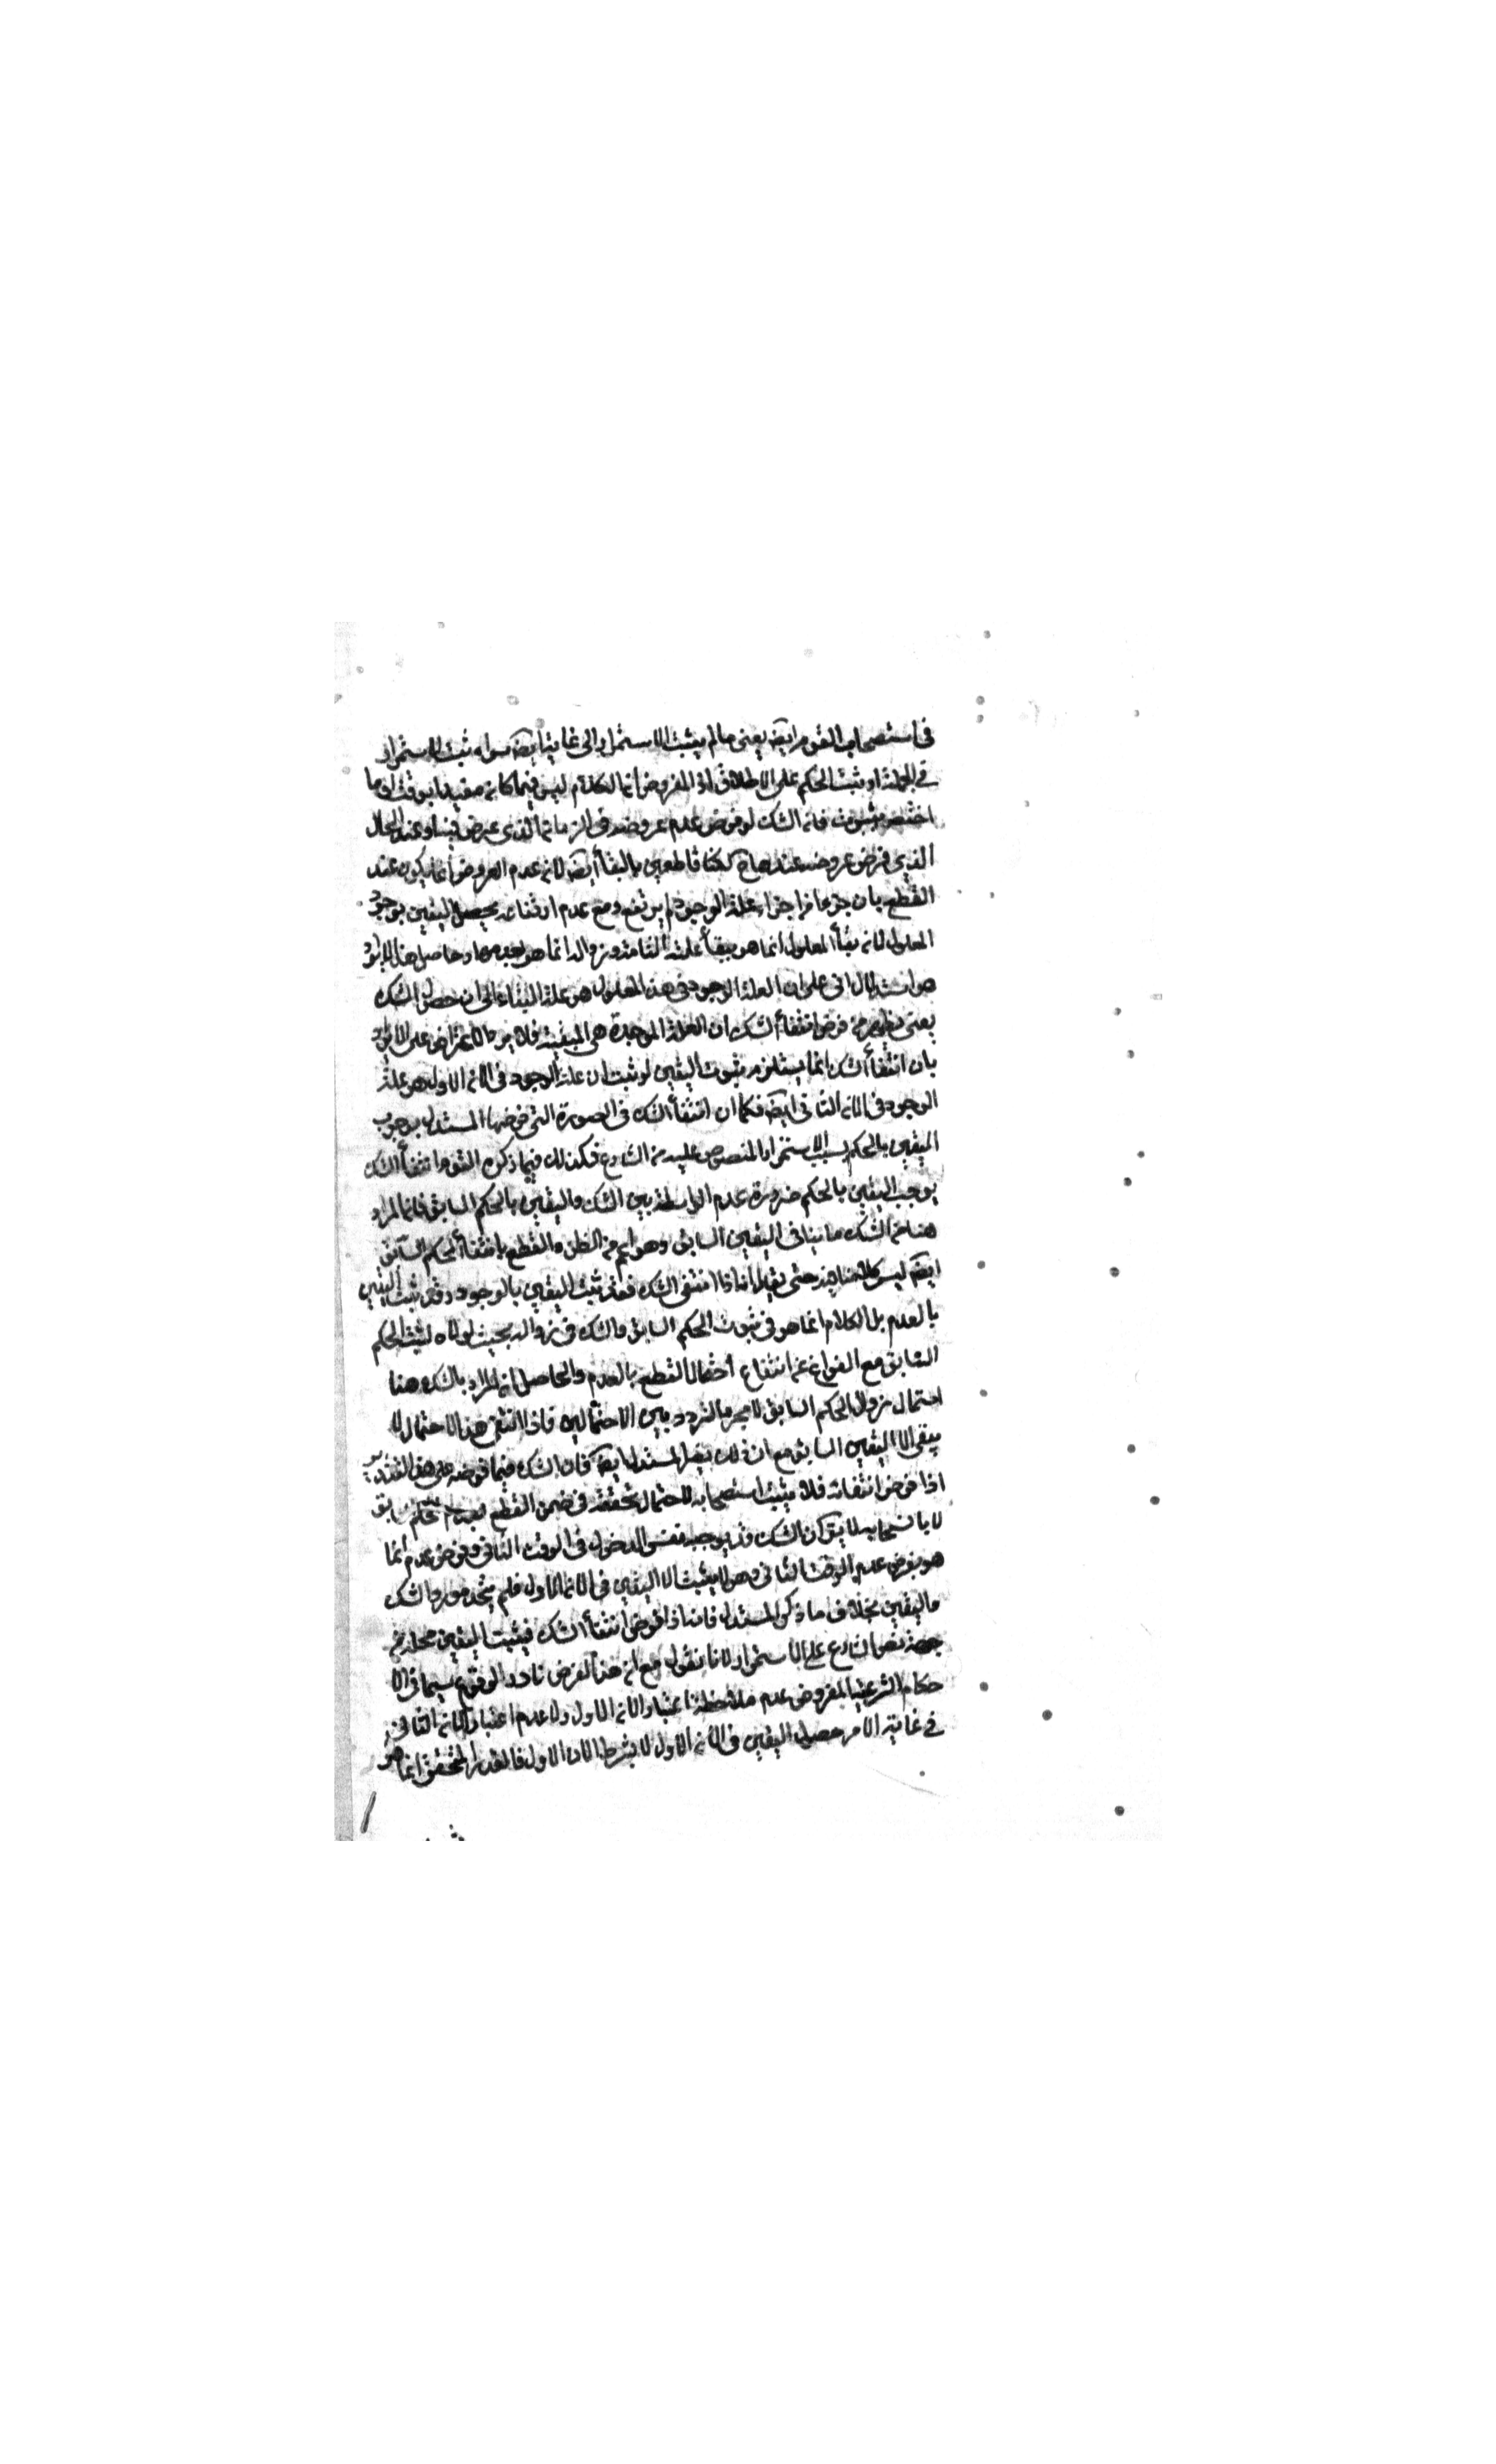 في استصحاب القوم ايضا يعني ما لم يثبت الاستمرار الى غاية ايضا سواء ثبت الاستمرار
في الجملة او ثبت الحكم على الاطلاق اذ المفروض ان الكلام ليس فيما كان مقيدا بوقت او ما
اختص بثبوت فان الشك لو فرض عدم عروضه في الزمان الذي عرض فيه او عند الحال
الذي فرض عروضه عندها لكنا قاطعين بالبقاء ايضا لان عدم العروض انما يكون عند
القطع بان جزءا من اجزاء علة الوجود لم يرتفع ومع عدم ارتفاعه يحصل اليقين بوجود
المعلول لان بقاء المعلول انما هو ببقاء علته التامة وزواله انما هو بعدمها وحاصل هذا الايراد
هو استدلال اني على ان العلة الوجود في هذا المعلول هو علة البقاء الى ان حصول الشك
يعني يظهر من فرض انتفاء الشك ان العلة الموجدة هي المبقية فلا يرد الاعتراض على الايراد
بان انتفاء الشك انما يستلزم ثبوت اليقين لو ثبت ان علة الوجود في الان الاول هو علة
الوجود في الان الثاني ايضا فكما ان انتفاء الشك في الصورة التي فرضها المستدل يوجب
اليقين بالحكم بسبب الاستمرار المنصوص عليه من الشارع فكذلك فيما ذكره القوم انتفاء الشك
يوجب اليقين بالحكم ضرورة عدم الواسطة بين الشك واليقين بالحكم السابق فان المراد
هنا من الشك ما ينافي اليقين السابق وهو اعم من الظن والقطع بانتفاء الحكم السابق
ايضا ليس كلامنا فيه حتى يقال انا اذا انتفى الشك فقد يثبت اليقين بالوجود وقد يثبت اليقين
بالعدم بل الكلام انما هو في ثبوت الحكم السابق والشك في زواله بحيث لولاه لثبت الحكم
السابق مع الفراغ عن انتفاع احتمال القطع بالعدم والحاصل ان المراد بالشك هنا
احتمال زوال الحكم السابق لا مجرد التردد بين الاحتمالين فاذا انتفى هذا الاحتمال لا
يبقى الا اليقين السابق مع ان ذلك يضر المستدل ايضا فان الشك فيما فرضه على هذا التقدير
اذا فرض انتفائه فلا يثبت استصحابه لاحتمال تحققه في ضمن القطع بعدم حكم سابق
لا يا لا يق ان الشك قد يوجبه نفس الدخول في الوقت الثاني وفرض عدمه انما
هو بفرض عدم الوقت الثاني وهو لا يثبت الا اليقين في الان الاول فلم يتحد مورد الشك
واليقين بخلاف ما ذكره المستدل فاننا اذا فرض انتفاء الشك فيثبت اليقين محله من
جهة نص الشارع على الاستمرار لانا نقول مع ان هذا الفرض نادر الوقوع سيما في الا
حكام الشرعية المفروض عدم ملاحظة اعتبار الان الاول ولا عدم اعتبار الان الثاني
في غاية الامر حصول اليقين في الان الاول لا بشرط الان الاول فالقدر المحقق انما هو